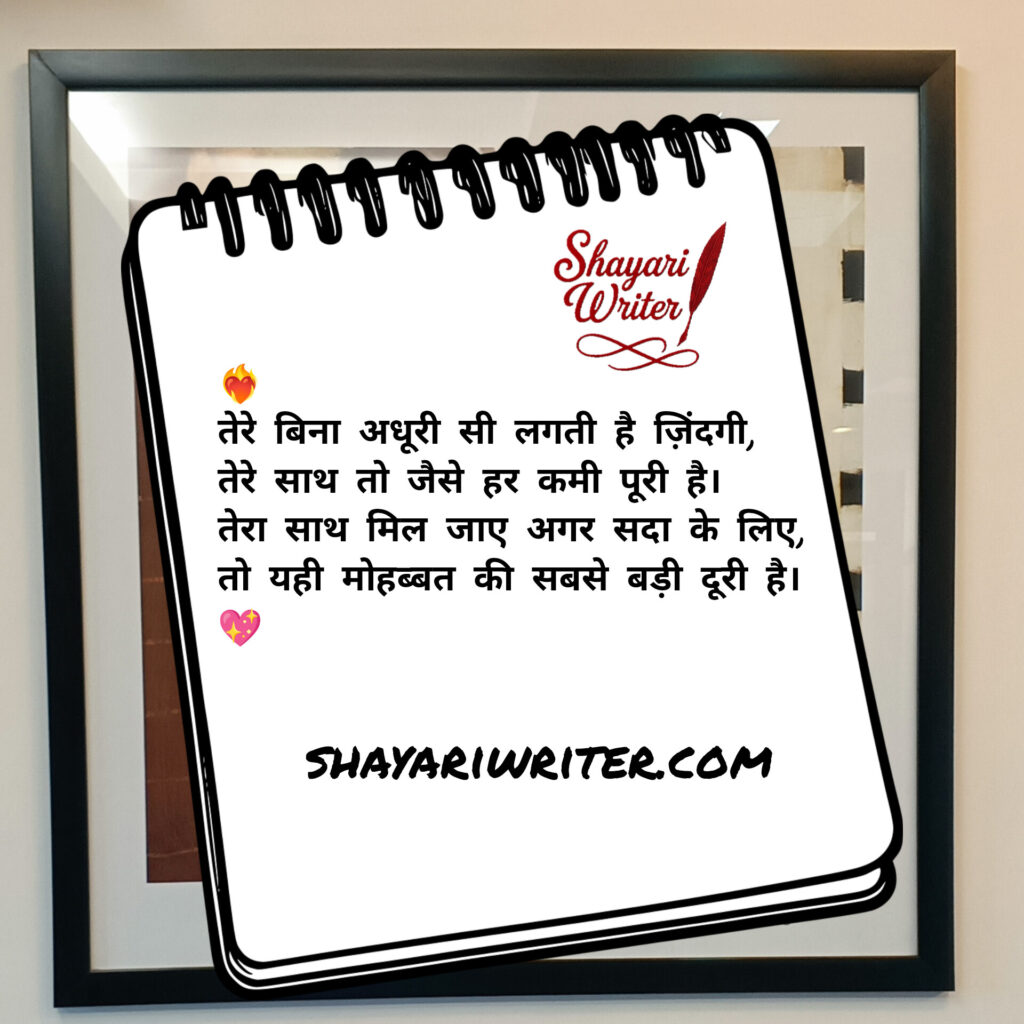 Shayari
Writer
❤️‍🔥
तेरे बिना अधूरी सी लगती है ज़िंदगी,
तेरे साथ तो जैसे हर कमी पूरी है।
तेरा साथ मिल जाए अगर सदा के लिए,
तो यही मोहब्बत की सबसे बड़ी दूरी है।
💖
SHAYARIWRITER.COM